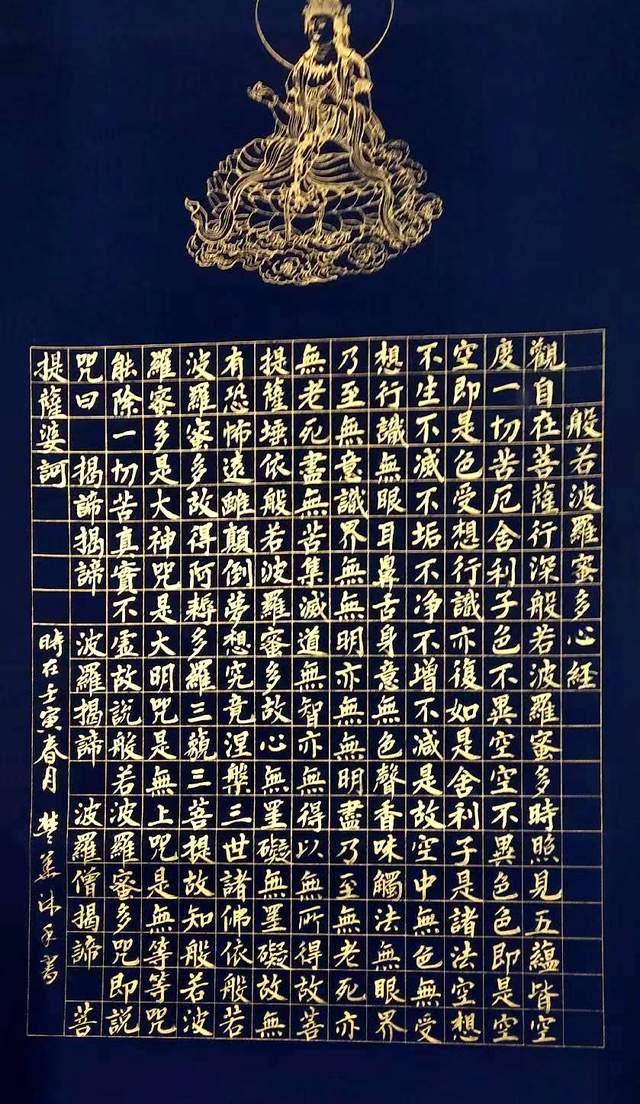 般若波羅蜜多心経
觀自在菩薩行深般若波羅蜜多時照見五蘊皆空
度一切苦厄舍利子色不異空空不異色色即是空
空即是色受想行識亦復如是舍利子是諸法空想
不生不滅不垢不净不增不減是故空中無色無受
想行識無眼耳鼻舌身意無色聲香味觸法無眼界
乃至無意識界無無明亦無無明盡乃至無老死亦
無老死盡無苦集滅道無智亦無得以無所得故菩
提薩埵依般若波羅蜜多故心無罣礙無罣礙故無
有恐怖遠離顛倒夢想究竟涅槃三世諸佛依般若
波羅蜜多故得阿耨多羅三藐三菩提故知般若波
羅蜜多是大神咒是大明咒是無上咒是無等等咒
能除一切苦真實不虛故說般若波羅蜜多咒即説
咒曰 揭諦揭諦 波羅揭諦 波羅僧揭諦 菩
提薩婆訶 時在壬寅春月 沐手書